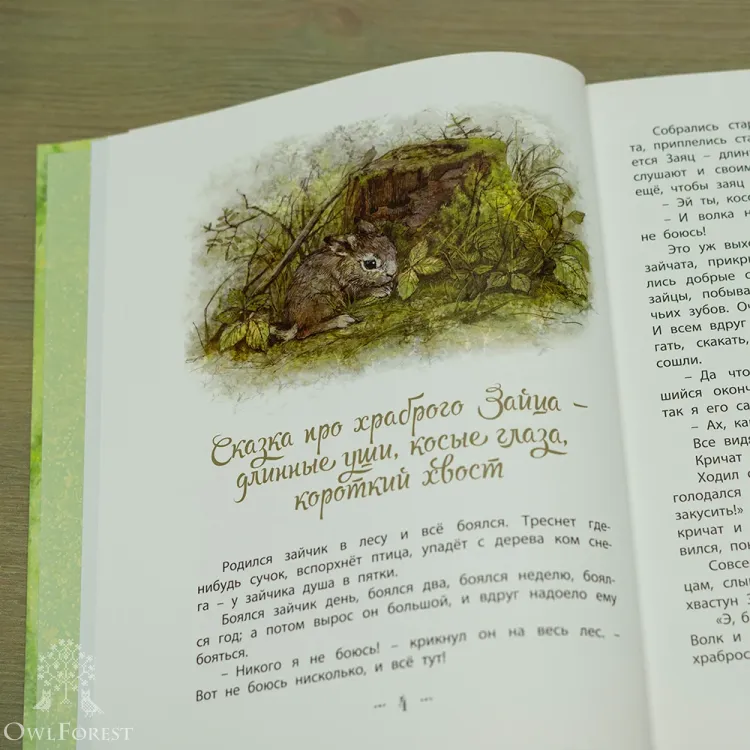 Сказка про храброго Зайца –
длинные уши, косые глаза,
короткий хвост
Родился зайчик в лесу и всё боялся. Треснет где-
нибудь сучок, вспорхнёт птица, упадёт с дерева ком сне-
га – у зайчика душа в пятки.
Боялся зайчик день, боялся два, боялся неделю, боял-
ся год; а потом вырос он большой, и вдруг надоело ему
бояться.
– Никого я не боюсь! – крикнул он на весь лес. –
Вот не боюсь нисколько, и всё тут!
4
Собрались
та, приплелись
ется Заяц –
слушают и своим
ещё, чтобы заяц
– Эй ты,
– И волка
не боюсь!
Это уж
зайчата,
лись добрые
зайцы,
чьих зубов.
И всем вдруг
гать, скакать,
сошли.
– Да что
шийся
так я его
– Ах,
Все
Кричат
Ходил
голодался
закусить!»
кричат и
вился,
Совсе
цам,
хвастун
«Э,
Волк и
OwlForest